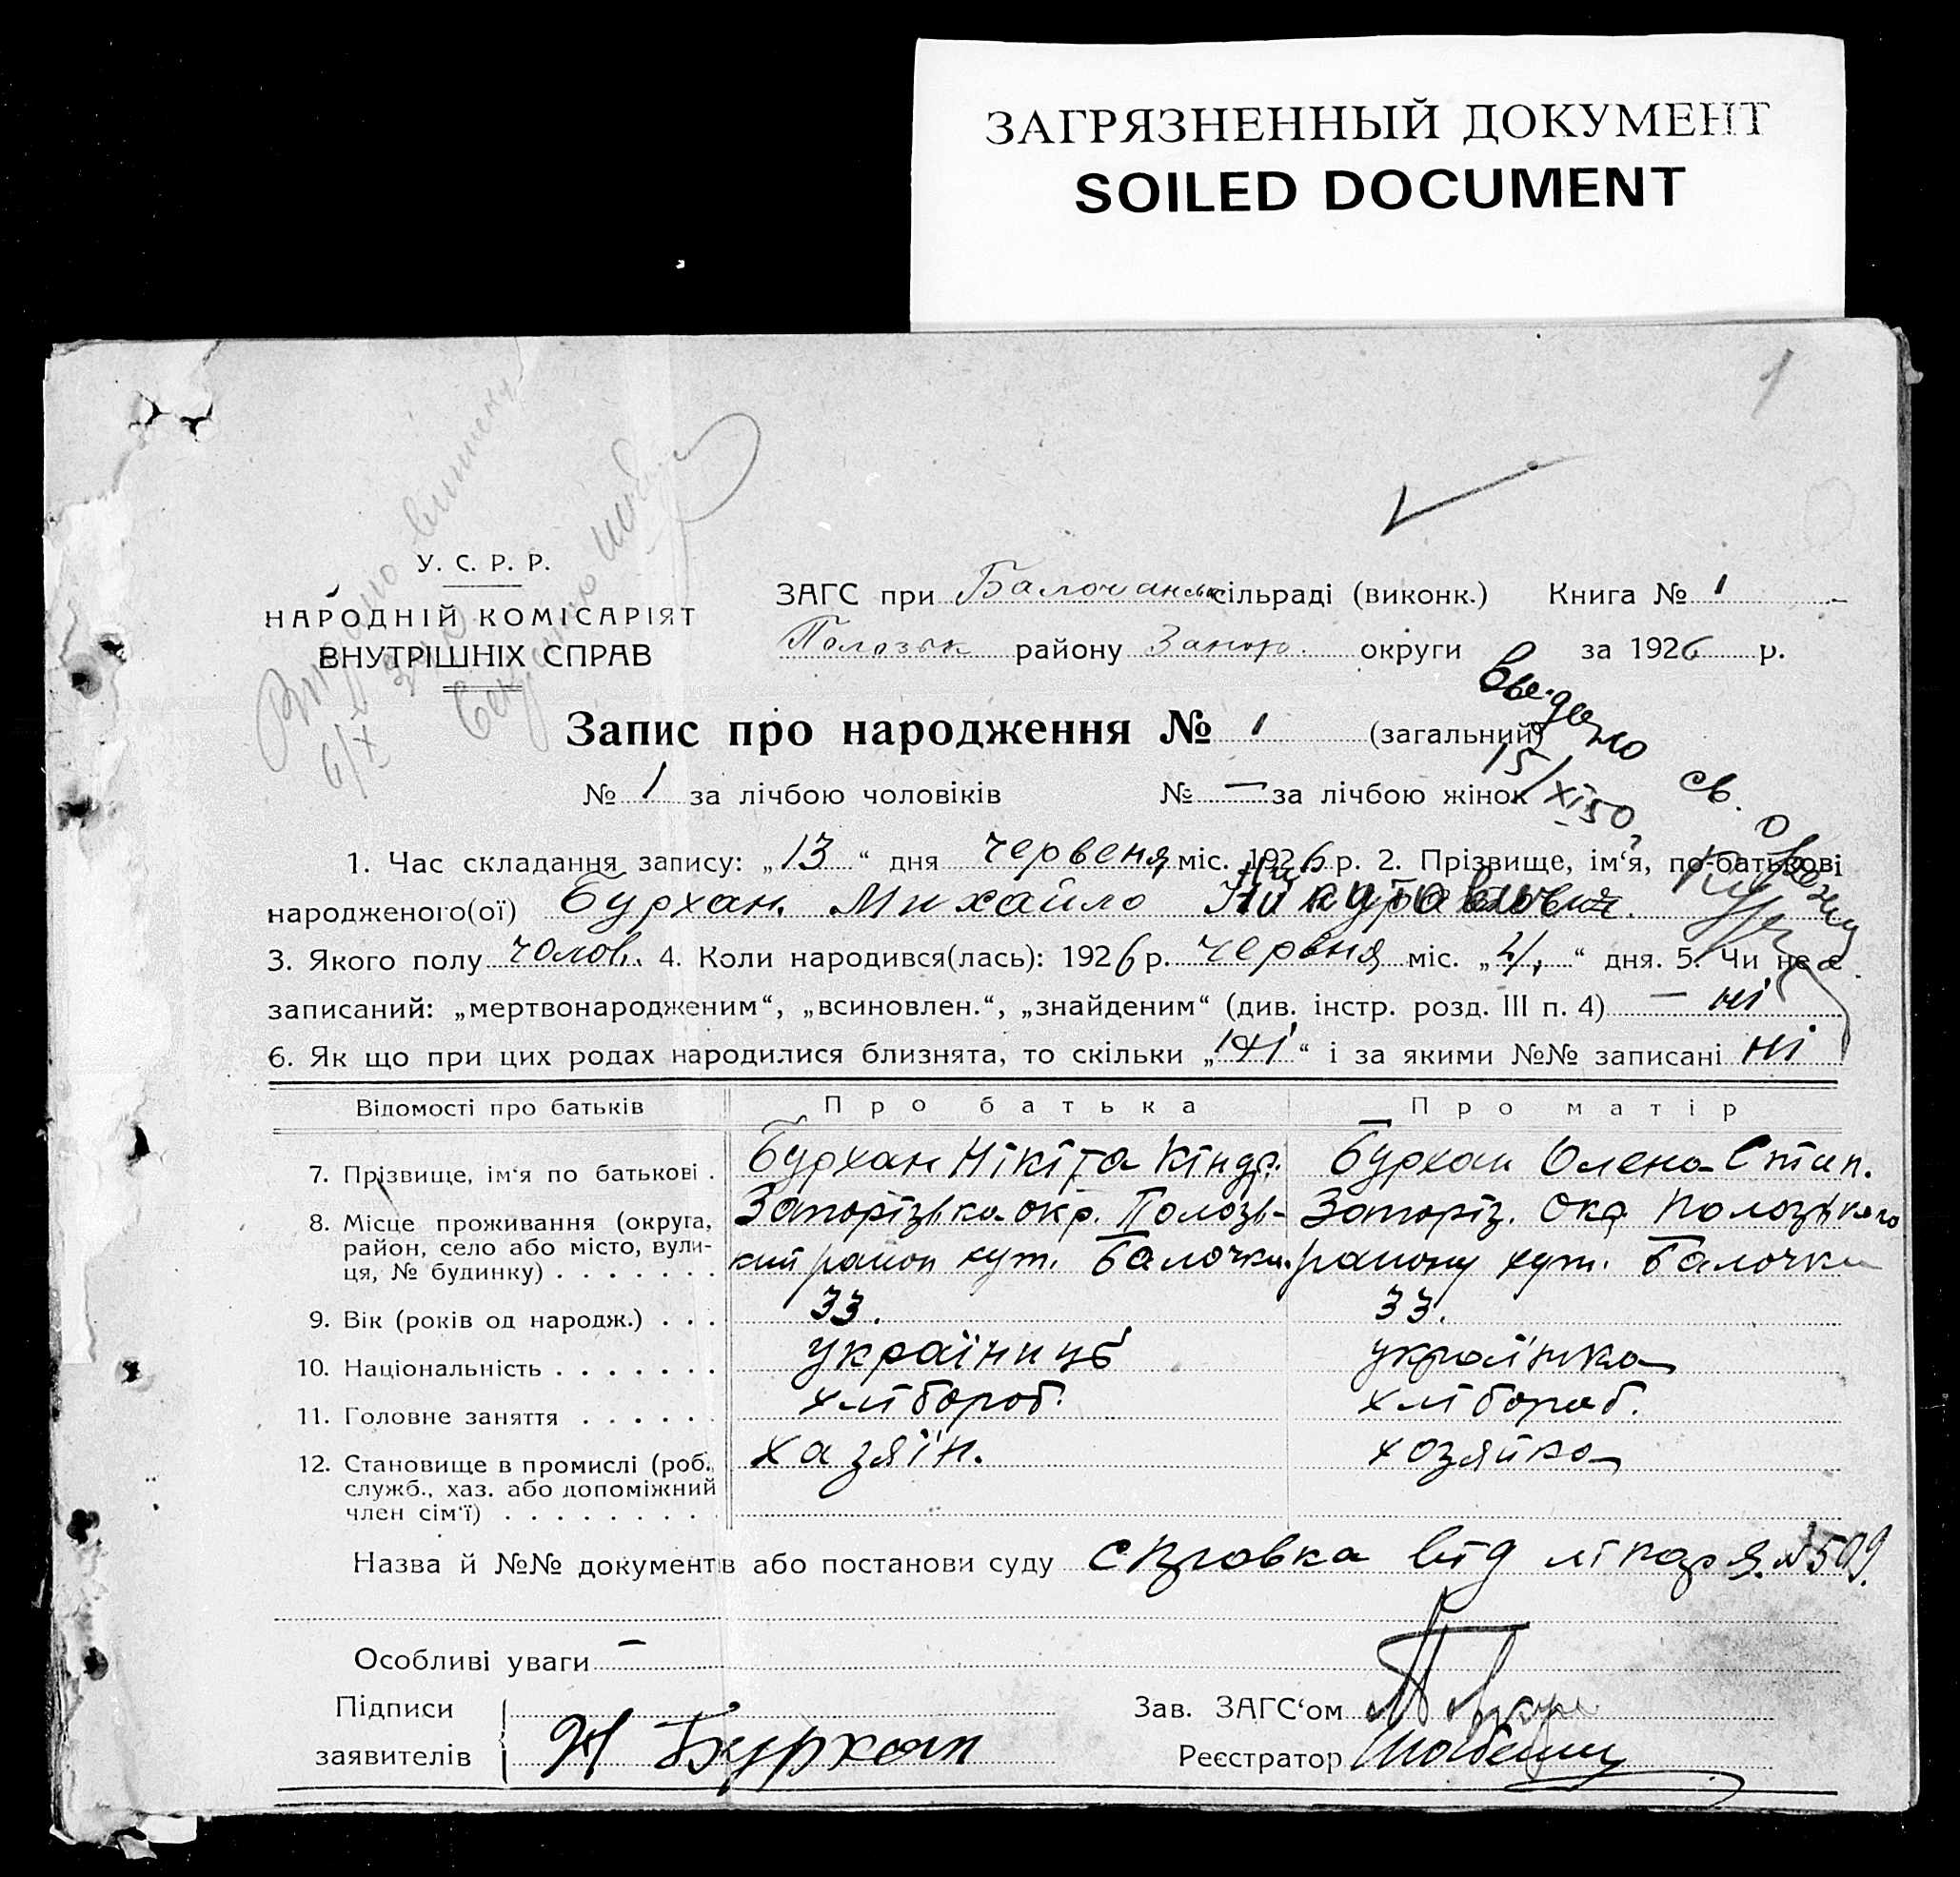 ЗАГРЯЗНЕННЫЙ ДОКУМЕНТ
SOILED DOCUMENT
1
У. С. Р. Р.
НАРОДНІЙ КОМІСАРІЯТ
ВНУТРІШНІХ СПРАВ
ЗАГС при Балочанськ сільраді (виконк.) Книга № 1
Полозьк району Запор. округи за 1926 р.
Запис про народження № 1 (загальний)
№ 1 за лічбою чоловіків № — за лічбою жінок
15/XI 50
1. Час складання запису: „13“ дня червеня міс. 1926 р. 2. Прізвище, ім‘я, по-батькові
народженого(ої) Бурхан Михайло
3. Якого полу чолов. 4. Коли народився(лась): 1926 р. червня міс. „4,“ дня. 5. Чи не є
записаний: „мертвонародженим“, „всиновлен.“, „знайденим“ (див. інстр. розд. III п. 4) — ні
6. Як що при цих родах народилися близнята, то скільки „ні“ і за якими №№ записані ні
Відомості про батьків Про батька Про матір
7. Прізвище, ім‘я по батькові . Бурхан Нікіта Кіндр. Бурхан Олена Стип.
8. Місце проживання (округа, Запорізька окр. Полозь- Запоріз. окр Полозького
район, село або місто, вули- кий район хут. Балочки. району хут. Балочки
ця, № будинку) . . . . . . .
9. Вік (років од народж.) . . . 33. 33.
10. Національність . . . . . . . україниць українка
11. Головне заняття . . . . . . хлібороб. хлібороб.
12. Становище в промислі (роб., хазяїн. хозяйка
служб., хаз. або допоміжний
член сім‘ї) . . . . . . . . .
Назва й №№ документів або постанови суду справка від лікаря №509.
Особливі уваги —
Підписи Зав. ЗАГС‘ом
заявителів Н Бурхан Реєстратор